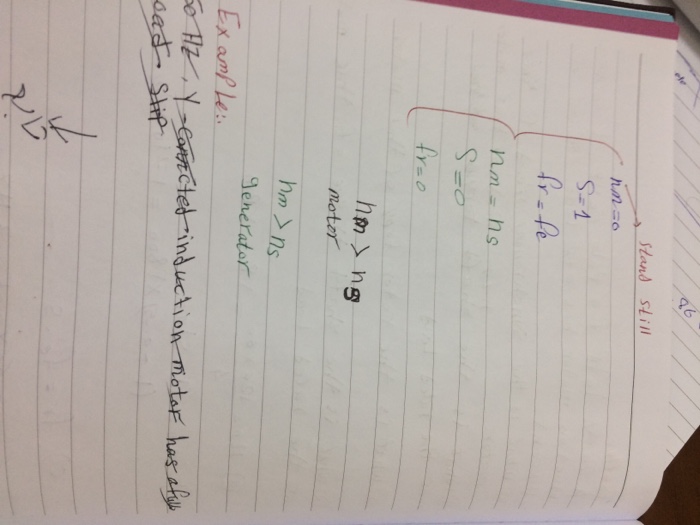 nm=0 → stand still
S=1
fr=fe
nm=ns
S=0
fr=0
nm > ns
motor
nm > ns
generator
Example:
Hz, Y-connected induction motor has a full
slip